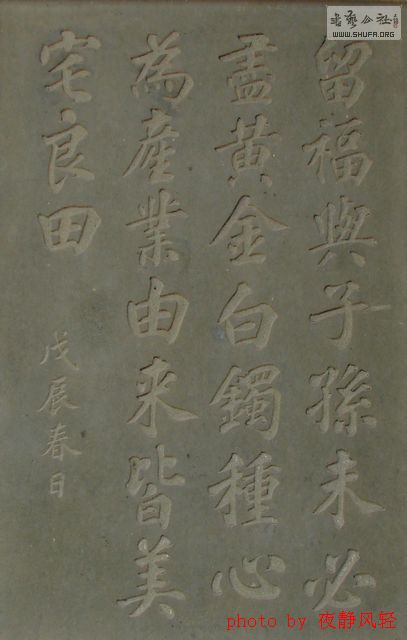 書藝公社
WWW.SHUFA.ORG
留福與子孫未必
盡黄金白鐲種心
為產業由来皆美
宅良田
戊辰春日
photo by 夜静风轻